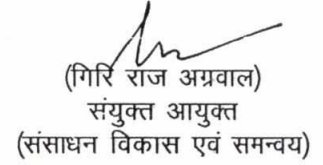 (गिरि राज अग्रवाल)
संयुक्त आयुक्त
(संसाधन विकास एवं समन्वय)